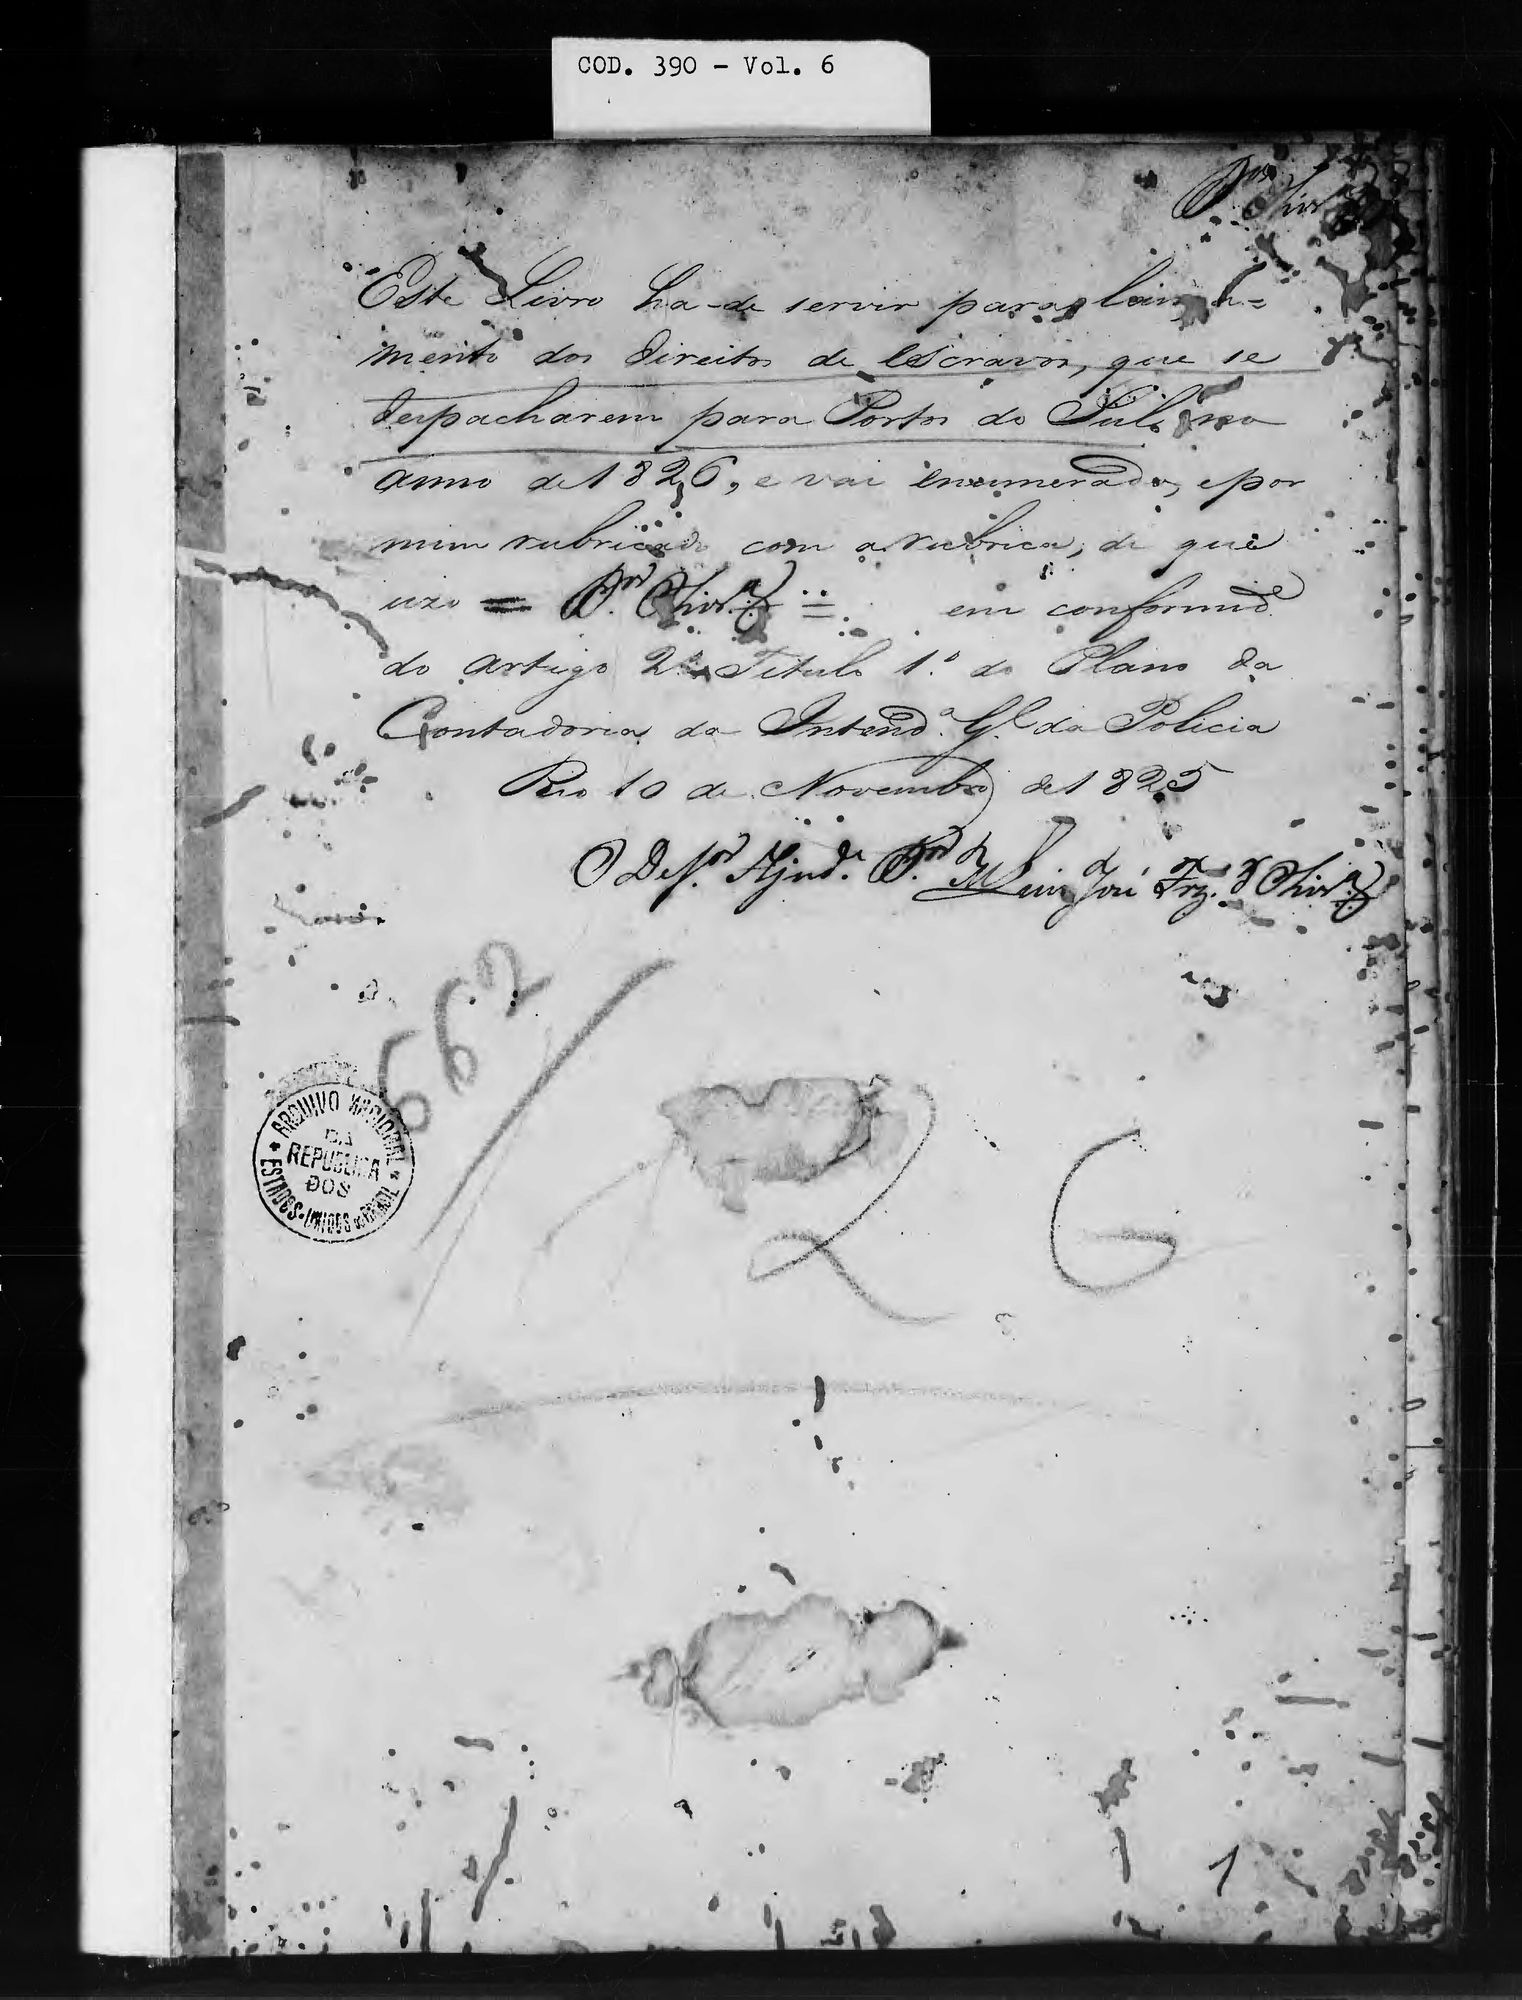 COD. 390 - Vol. 6
Este Livro ha-de servir para o lança=
mento dos direitos de Escravos, que se
despacharem para Portos do Sul no
anno de 1826, e vai enumerado, e por
mim rubricado com a rubrica, de que
uzo = Olivrª = em conformidᵉ
do artigo 2º Titulo 1.º do Plano da
Contadoria da Intendª. G.ˡ da Policia
Rio 10 de Novembro de 1825
O Des.ᵒʳ Ajud.ᵉ Luiz José Frz. d' Olivrª
662
26
ARQUIVO NACIONAL
DA
REPUBLICA
DOS
ESTADOS-UNIDOS do BRASIL
1